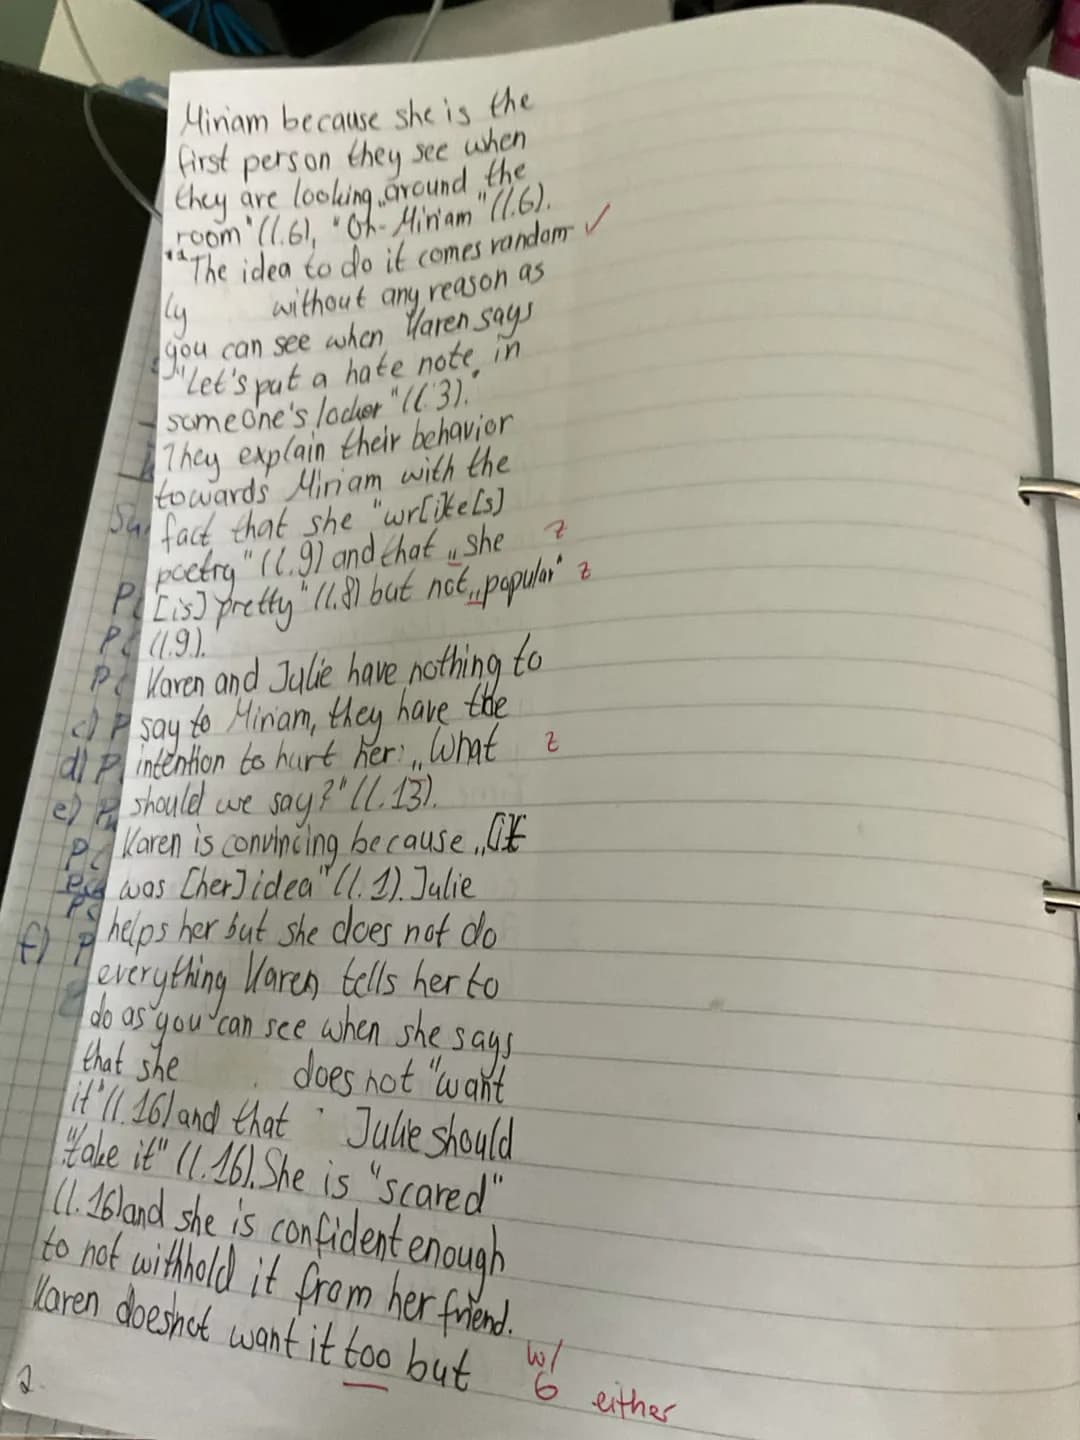 Miriam because she is the
first person they see when
they are looking „around the
room"(l.6), "Oh-Miriam"(l.6). ✓
The idea to do it comes random
ly without any reason as
you can see when Karen says
"Let's put a hate note in
someone's locker"(l.3).
They explain their behavior
towards Miriam with the
fact that she "wr[i]te[s]
poetry"(l.9) and that „she z
[is] pretty"(l.8) but not „popular" z
(l.9).
Karen and Julie have nothing to
say to Miriam, they have the
intention to hurt her: „What z
should we say?"(l.13).
Karen is convincing because „[i]t
was [her] idea"(l.1). Julie
helps her but she does not do
everything Karen tells her to
do as you can see when she says
that she does not "want
it"(l.16) and that Julie should
"take it"(l.16). She is "scared"
(l.16) and she is confident enough
to not withhold it from her friend.
Karen doesnot want it too but w/
G either
2.
c) P
d) P
e)
f) P